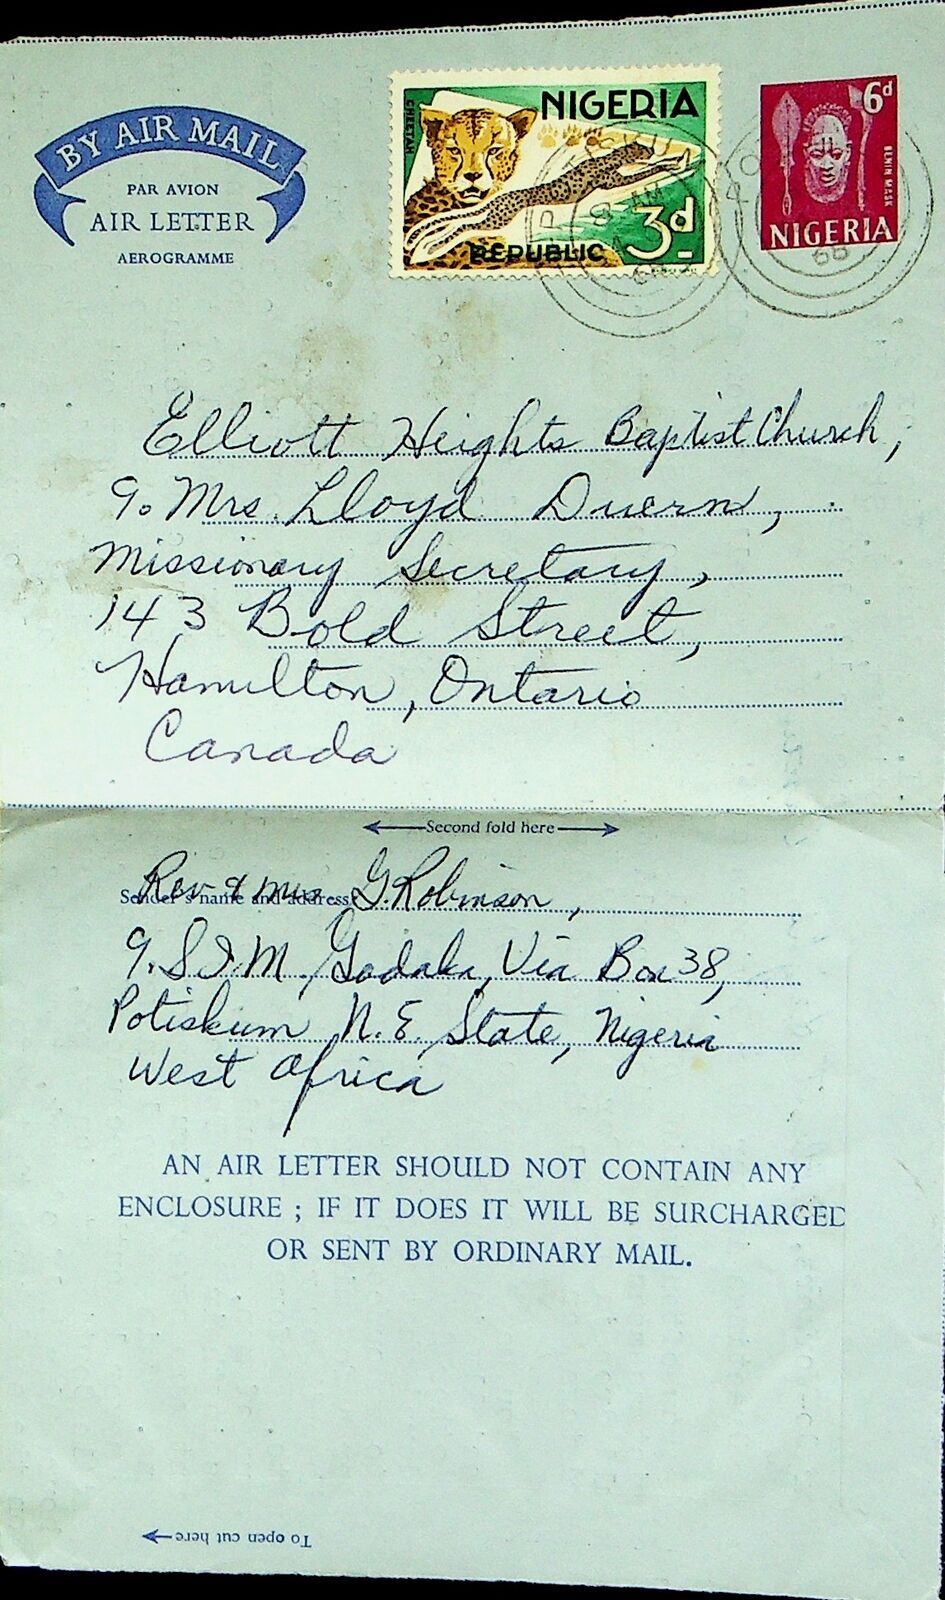 BY AIR MAIL
PAR AVION
AIR LETTER
AEROGRAMME
CHEETAH
NIGERIA
REPUBLIC
3d
6d
BENIN MASK
NIGERIA
Elliott Heights Baptist Church,
℅ Mrs. Lloyd Duern,
Missionary Secretary,
143 Bold Street,
Hamilton, Ontario
Canada
Second fold here
Sender's name and address:
Rev & Mrs G. Robinson,
℅ S.I.M. Gadaka, Via Box 38,
Potiskum N.E. State, Nigeria
West Africa
AN AIR LETTER SHOULD NOT CONTAIN ANY
ENCLOSURE ; IF IT DOES IT WILL BE SURCHARGED
OR SENT BY ORDINARY MAIL.
To open cut here